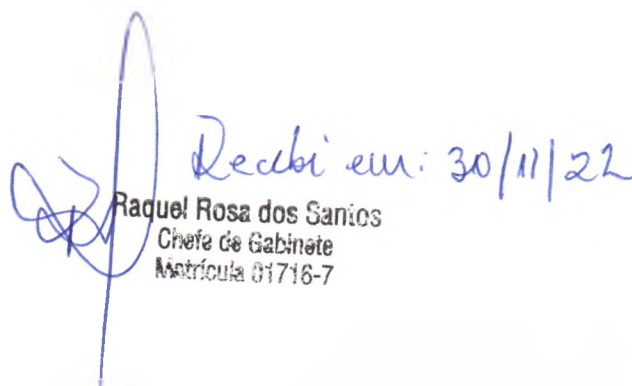 Recebi em: 30/11/22
Raquel Rosa dos Santos
Chefe de Gabinete
Matrícula 01716-7